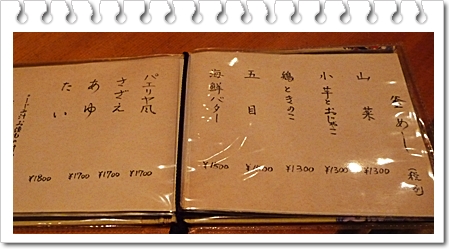 釜めし
山菜 ¥1300
小芋とおじゃこ ¥1300
鶏ときのこ ¥1300
五目
海鮮バター ¥1500
パエリヤ風 ¥1700
さざえ ¥1700
あゆ ¥1700
たい ¥1800